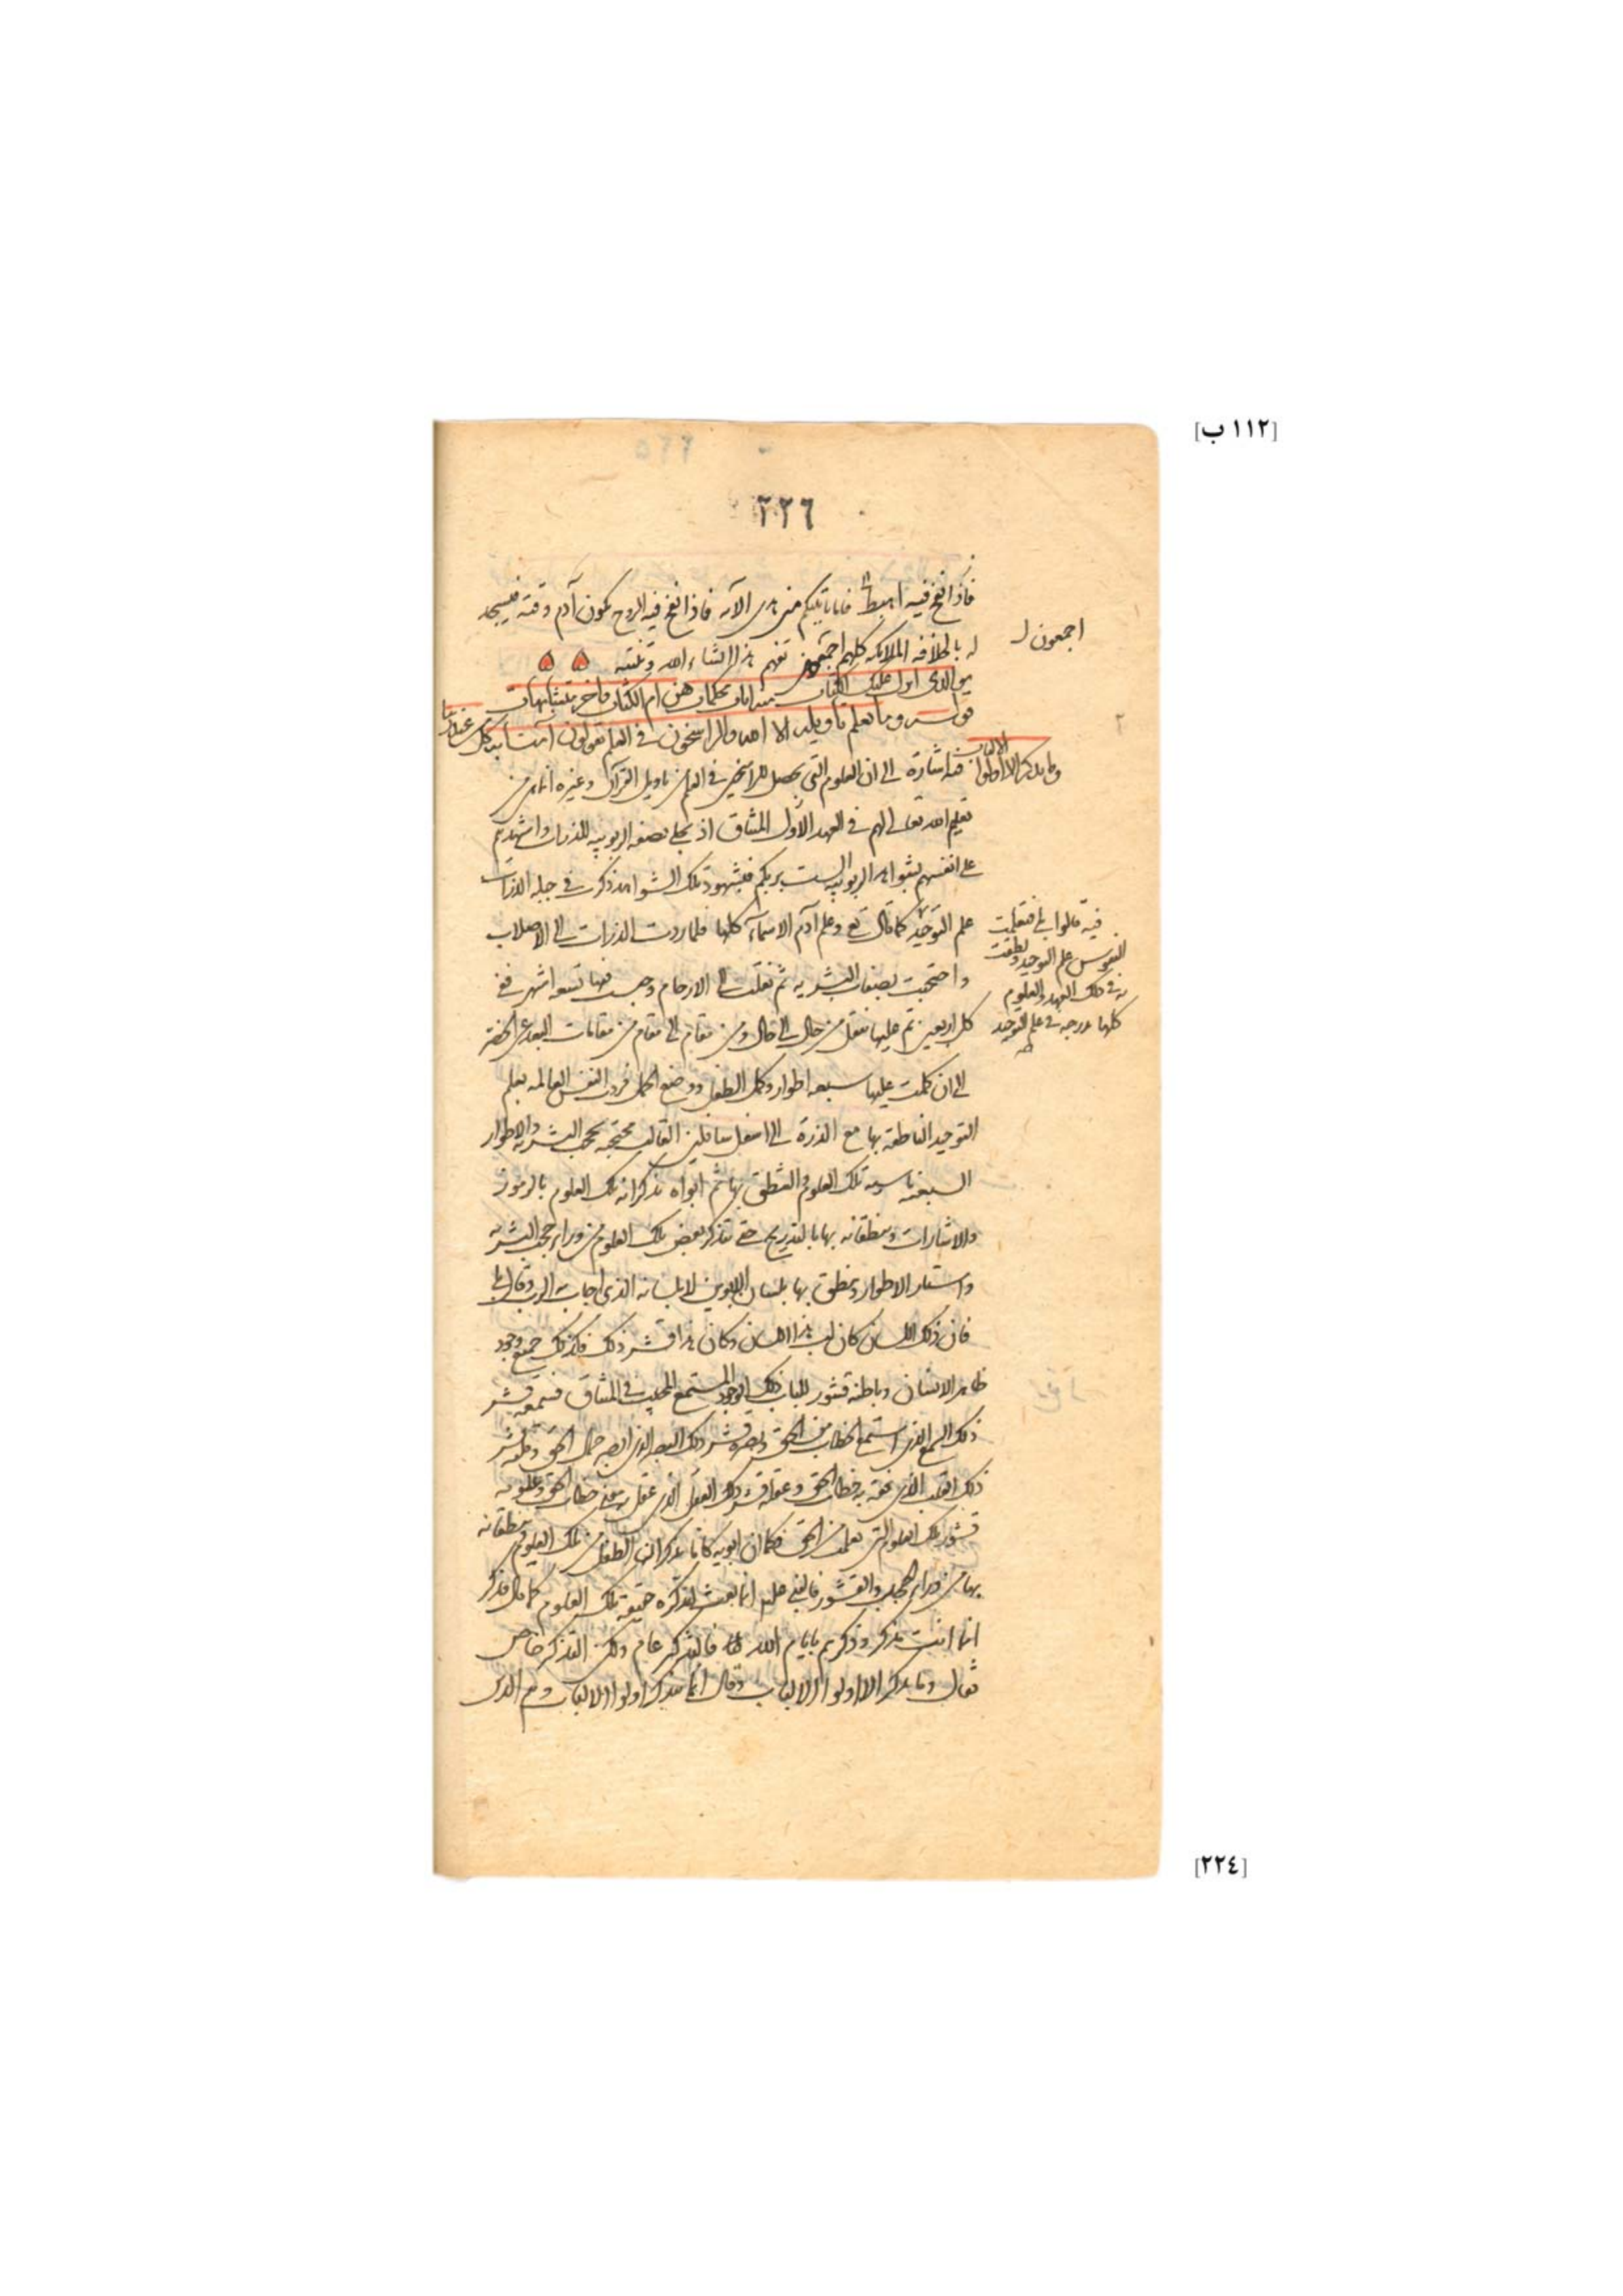 [١١٢ ب]
٢٢٦
فاذا نفخ فيه اهبطا فاما ياتينكم مني هدى الآيه فاذا نفخ فيه الروح يكون آدم وقته فيسجد
له بالخلافة الملائكة كلهم اجمعون تفهم هذا ان شاء الله وتنتبه
اجمعون
هو الذى انزل عليك الكتاب منه ايات محكمات هن ام الكتاب واخر متشابهات
وما يعلم تأويله الا الله والراسخون فى العلم يقولون آمنا به كل من عند ربنا
وما يذكر الا اولوا الالباب فيه اشارة الى ان العلوم التى يحصل للراسخين فى العلم من تاويل القرآن وغيره انما من
تعليم الله تعالى لهم فى العهد الاول الميثاق اذ تجلى بصفة الربوبيه للذرات واشهدهم
على انفسهم بشواهد الربوبيه الست بربكم فبشهود تلك الشواهد ذكرت فى جبله الذرات
علم التوحيد كما قال تع وعلم آدم الاسمآء كلها فلما ردت الذرات الى الاصلاب
فيه قالوا بلى فتعلمت
النفوس علم التوحيد ونطقت
به فى ذلك العهد والعلوم
كلها مدرجه فى علم التوحيد
واحتجبت بصفات البشريه ثم نقلت الى الارحام وحبست فيها تسعة اشهر ففى
كل اربعين تم عليها تنقل من حال الى حال ومن مقام الى مقام من مقامات البعد عن الحضرة
الى ان كملت عليها سبعه اطوار وكمل الطفل ووضع الحمل فردت النفس العالمه بعلم
التوحيد الناطقة بها مع الذرة الى اسفل سافلين القالب محتجبه بحجب البشريه والاطوار
السبعه ناسيه تلك العلوم والنطق بها ثم ابواه يذكرانه تلك العلوم بالرموز
والاشارات وينطقانه بها بالتدريج حتى يتذكر بعض تلك العلوم من وراء حجب البشريه
واستار الاطوار وينطق بها بلسان الابوين لا بلسانه الذى اجاب به الرب وقال بلى
فان ذلك اللسان كان لب هذا اللسان وكان هذا قشر ذلك فكذلك جميع وجود
ظاهر الانسان وباطنه قشور للباب ذلك الوجود المستمع المجيب فى الميثاق فسمعه قشر
ذلك السمع الذى استمع خطاب من الحق وبصره قشر ذلك البصر الذى ابصر جمال الحق وقلبه قشر
ذلك القلب الذى فقه به خطاب الحق وعقله قشر ذلك العقل الذى عقل به معنى خطاب الحق وعلومه
قشور تلك العلوم التى تعلمت من الحق فكما ان ابويه كانا يذكران الطفل من تلك العلوم وينطقانه
بها من وراء الحجب والقشور فالنبى عليه انما بعث ليذكره حقيقة تلك العلوم كما قال فذكر
انما انت مذكر وذكرهم بايام الله فالتذكر عام ولكن التذكر خاص
فقال وما يذكر الا اولوا الالباب وقال انما يتذكر اولوا الالباب وهم الذين
[٢٢٤]